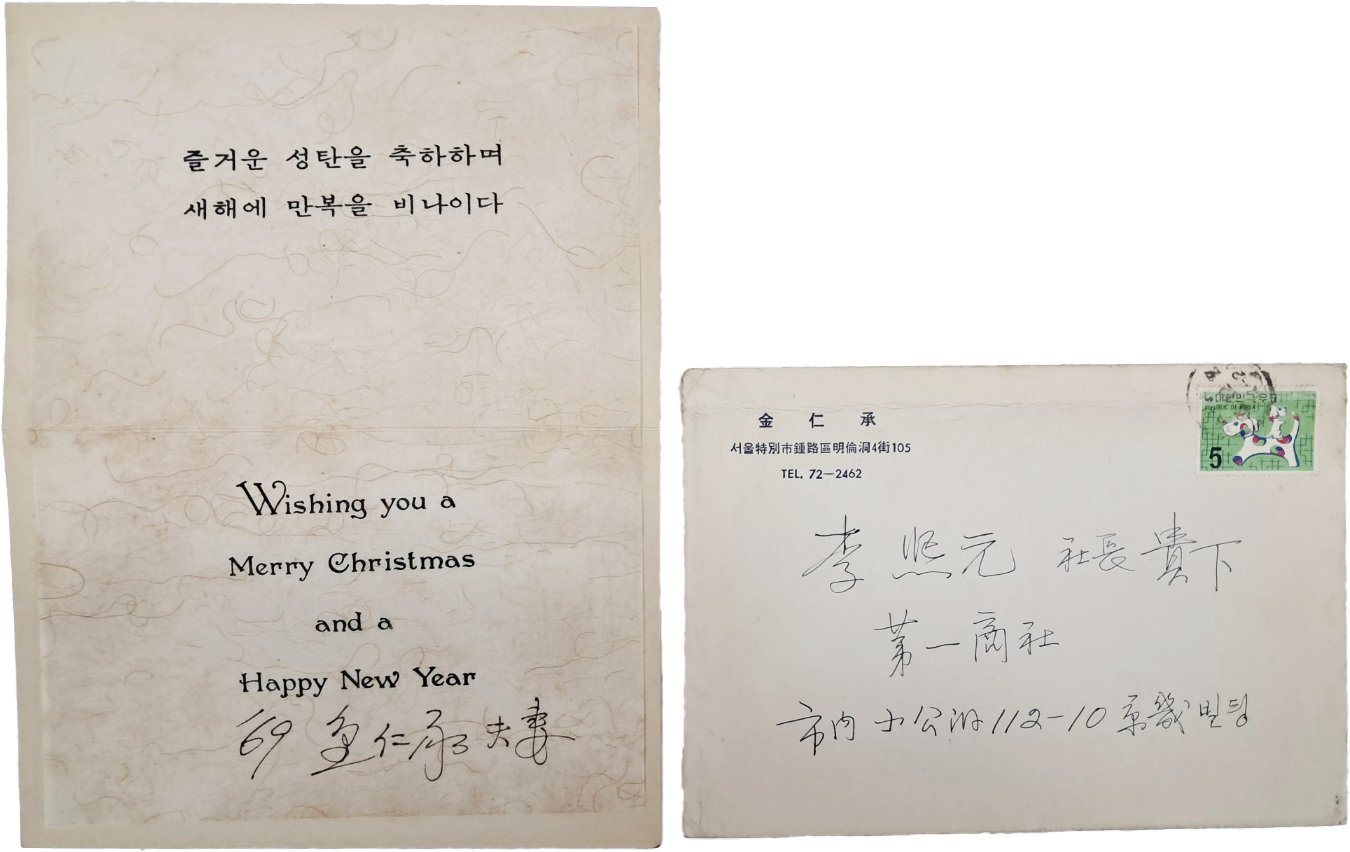 즐거운 성탄을 축하하며
새해에 만복을 비나이다
Wishing you a
Merry Christmas
and a
Happy New Year
'69 金仁承 夫妻
金仁承
서울特別市鍾路區明倫洞4街105
TEL. 72-2462
대한민국우표
REPUBLIC OF KOREA
5
李熙元 社長 貴下
第一商社
市內 小公洞 112-10 京畿빌딩